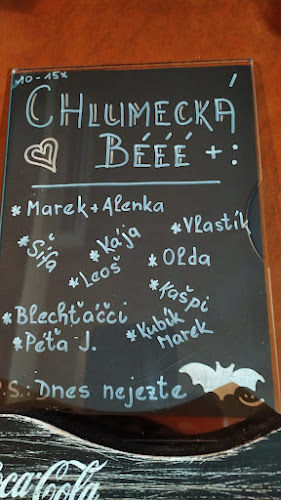 10-15x
CHLUMECKÁ
BÉÉÉ +:
* Marek + Alenka
* Vlastík
* Síťa
* Kája
* Leoš
* Olda
* Kašpi
* Blechťáčci
* Kubík
Marek
* Péťa J.
P.S.: Dnes nejezte
Coca-Cola